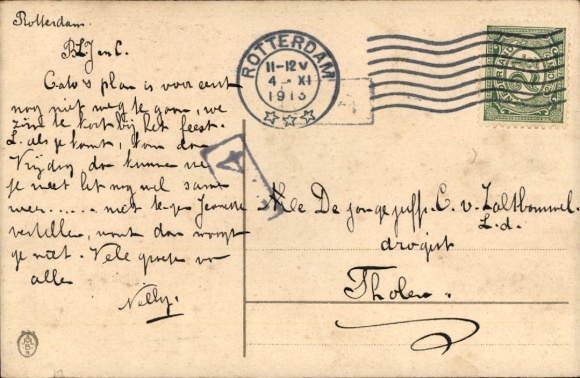 Rotterdam.
B L J en C.
Cato's plan is voor eerst
nog niet weg te gaan, we
zijn te kort bij het feest.
L. als je komt, kom dan
Vrijdag dan kunnen we
je met het nog wel samen
..... niet tegen Jeanette
vertellen, want dan
je niet. Vele groeten voor
allen
Nelly.
ROTTERDAM
11-12V
4 - XI
1913
A
De jonge juff. C. v. Zaltbommel
L.d.
drogist
Tholen.